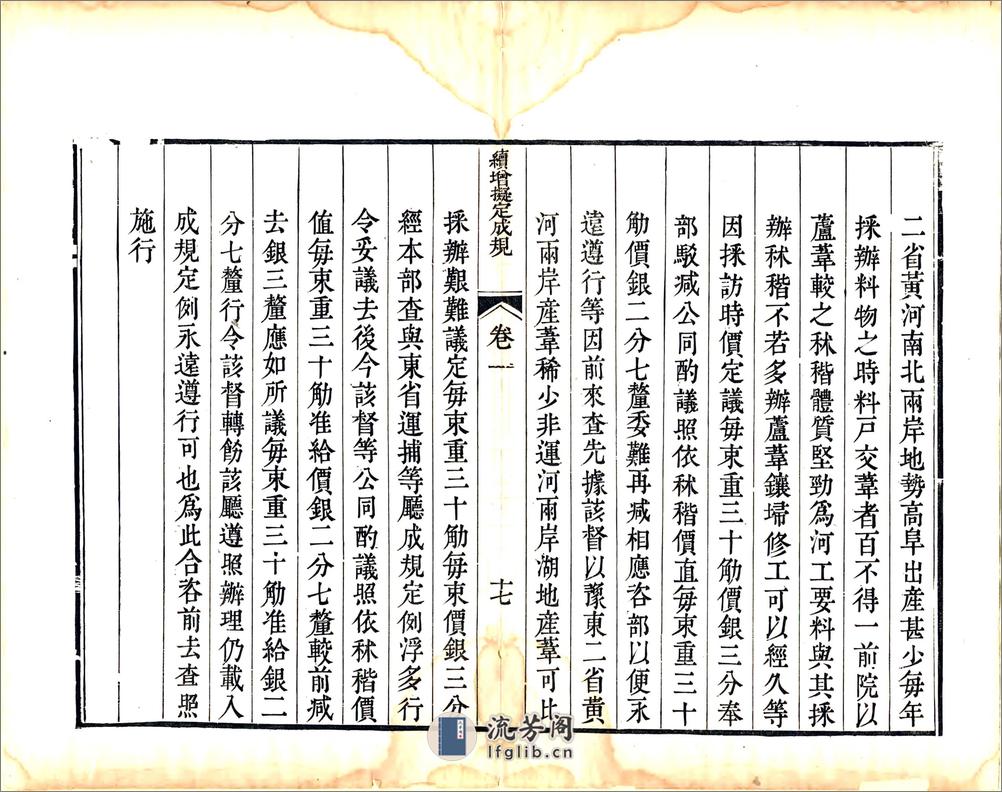 二省黃河南北兩岸地勢高阜出產甚少每年
採辦料物之時料戸交葦者百不得一前院以
蘆葦較之秫稭體質堅勁爲河工要料與其採
辦秫稭不若多辦蘆葦鑲埽修工可以經久等
因採訪時價定議每束重三十觔價銀三分奉
部駁减公同酌議照依秫稭價直每束重三十
觔價銀二分七釐委難再减相應咨部以便永
遠遵行等因前來查先據該督以豫東二省黃
河兩岸産葦稀少非運河兩岸湖地產葦可比
續增擬定成規
卷一
十七
採辦艱難議定每束重三十觔每束價銀三分
經本部查與東省運捕等廳成規定例浮多行
令妥議去後今該督等公同酌議照依秫稭價
值每束重三十觔准給價銀二分七釐較前减
去銀三釐應如所議每束重三十觔准給銀二
分七釐行令該督轉飭該廳遵照辦理仍載入
成規定例永遠遵行可也爲此合咨前去查照
施行
流芳阁
lfglib.cn